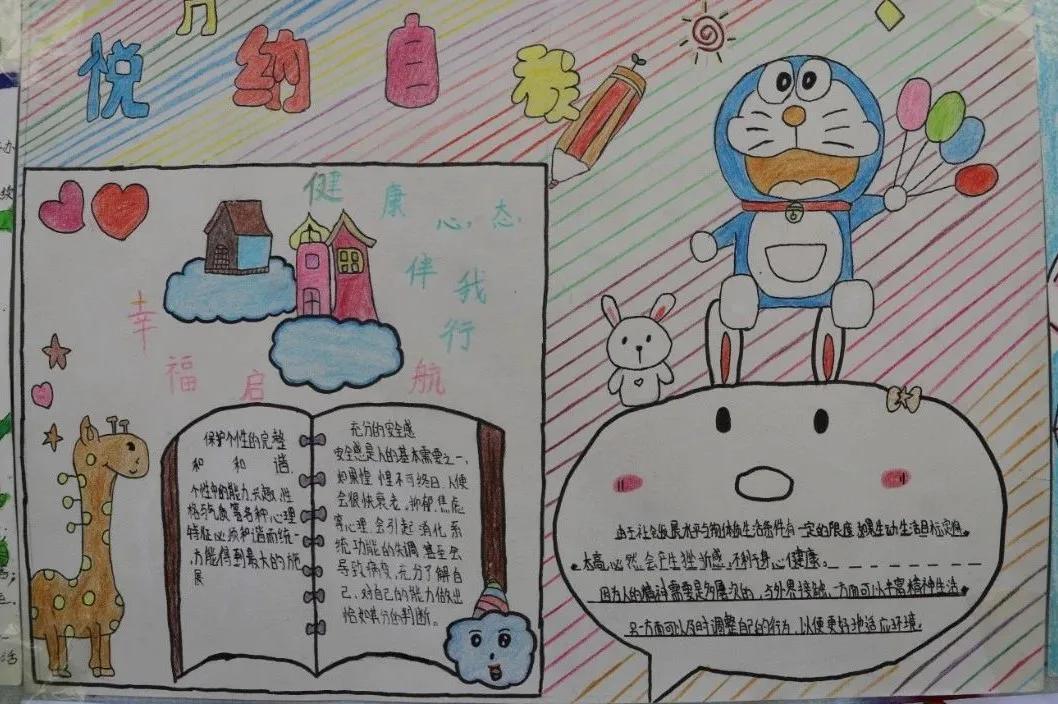 悦纳自我
健康心态,
伴我行
幸福启航
保护个性的完整
和和谐
个性中的能力、兴趣、性
格与气质等各种心理
特征必须和谐而统一
方能得到最大的施
展
充分的安全感
安全感是人的基本需要之一,
如果惶惶不可终日,人便
会很快衰老。抑郁、焦虑
等心理,会引起消化系
统功能的失调,甚至会
导致病变。充分了解自
己,对自己的能力做出
恰如其分的判断。
由于社会发展水平与物体生活条件有一定的限度,如果生动生活目标定得
太高,必然会产生挫折感,不利于身心健康。
因为人的精神需要是多层次的,与外界接触,一方面可以丰富精神生活。
另一方面可以及时调整自己的行为,以便更好地适应环境。